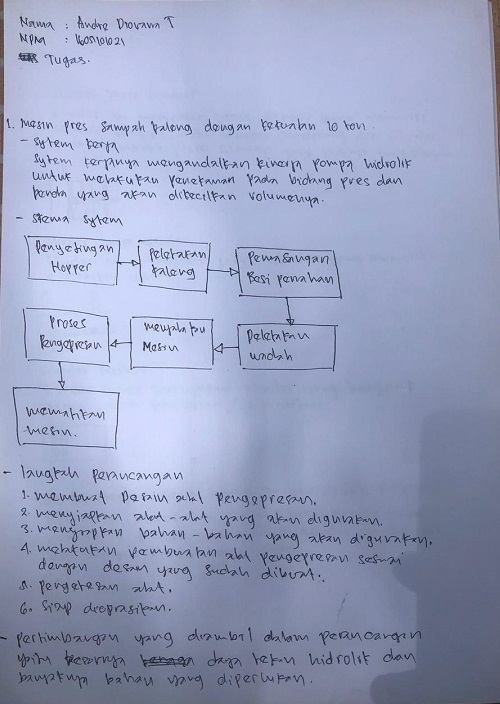 Nama : Andre Diovana T
NPM : 1605101021
Tugas.
1. Mesin pres sampah kaleng dengan kekuatan 10 ton
- Sytem kerja
Sytem kerjanya mengandalkan kinerja pompa hidrolik
untuk melakukan penekanan pada bidang pres dan
benda yang akan dikecilkan volumenya.
- skema sytem
Penyetingan
Hopper
Peletakan
kaleng
Pemasangan
Besi penahan
Peletakan
wadah
menyalakan
Mesin
Proses
Pengepresan
mematikan
mesin.
- langkah perancangan
1. membuat Desain alat pengepresan.
2. menyiapkan alat-alat yang akan digunakan.
3. menyiapkan bahan-bahan yang akan digunakan.
4. melakukan pembuatan alat pengepresan sesuai
dengan desain yang sudah dibuat.
5. pengetesan alat.
6. siap dioprasikan.
- pertimbangan yang diambil dalam perancangan
yaitu besarnya daya tekan hidrolik dan
banyaknya bahan yang diperlukan.